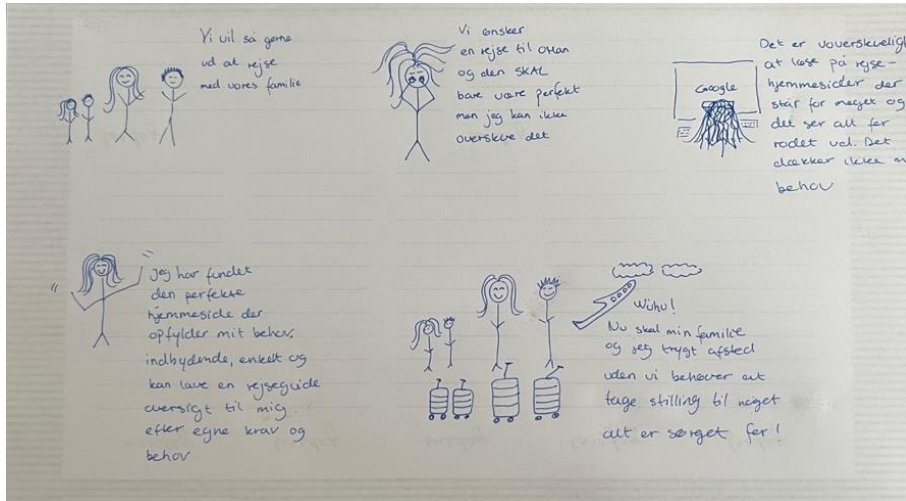 Vi vil så gerne
ud at rejse
med vores familie
Vi ønsker
en rejse til Oman
og den SKAL
bare være perfekt
men jeg kan ikke
overskue det
Google
Det er uoverskueligt
at læse på rejse-
hjemmesider der
står for meget og
det ser alt for
rodet ud. Det
dækker ikke
behov
Jeg har fundet
den perfekte
hjemmeside der
opfylder mit behov.
indbydende, enkelt og
kan lave en rejseguide
oversigt til mig
efter egne krav og
behov
Wuhu!
Nu skal min familie
og jeg trygt afsted
uden vi behøver at
tage stilling til noget
alt er sørget for!